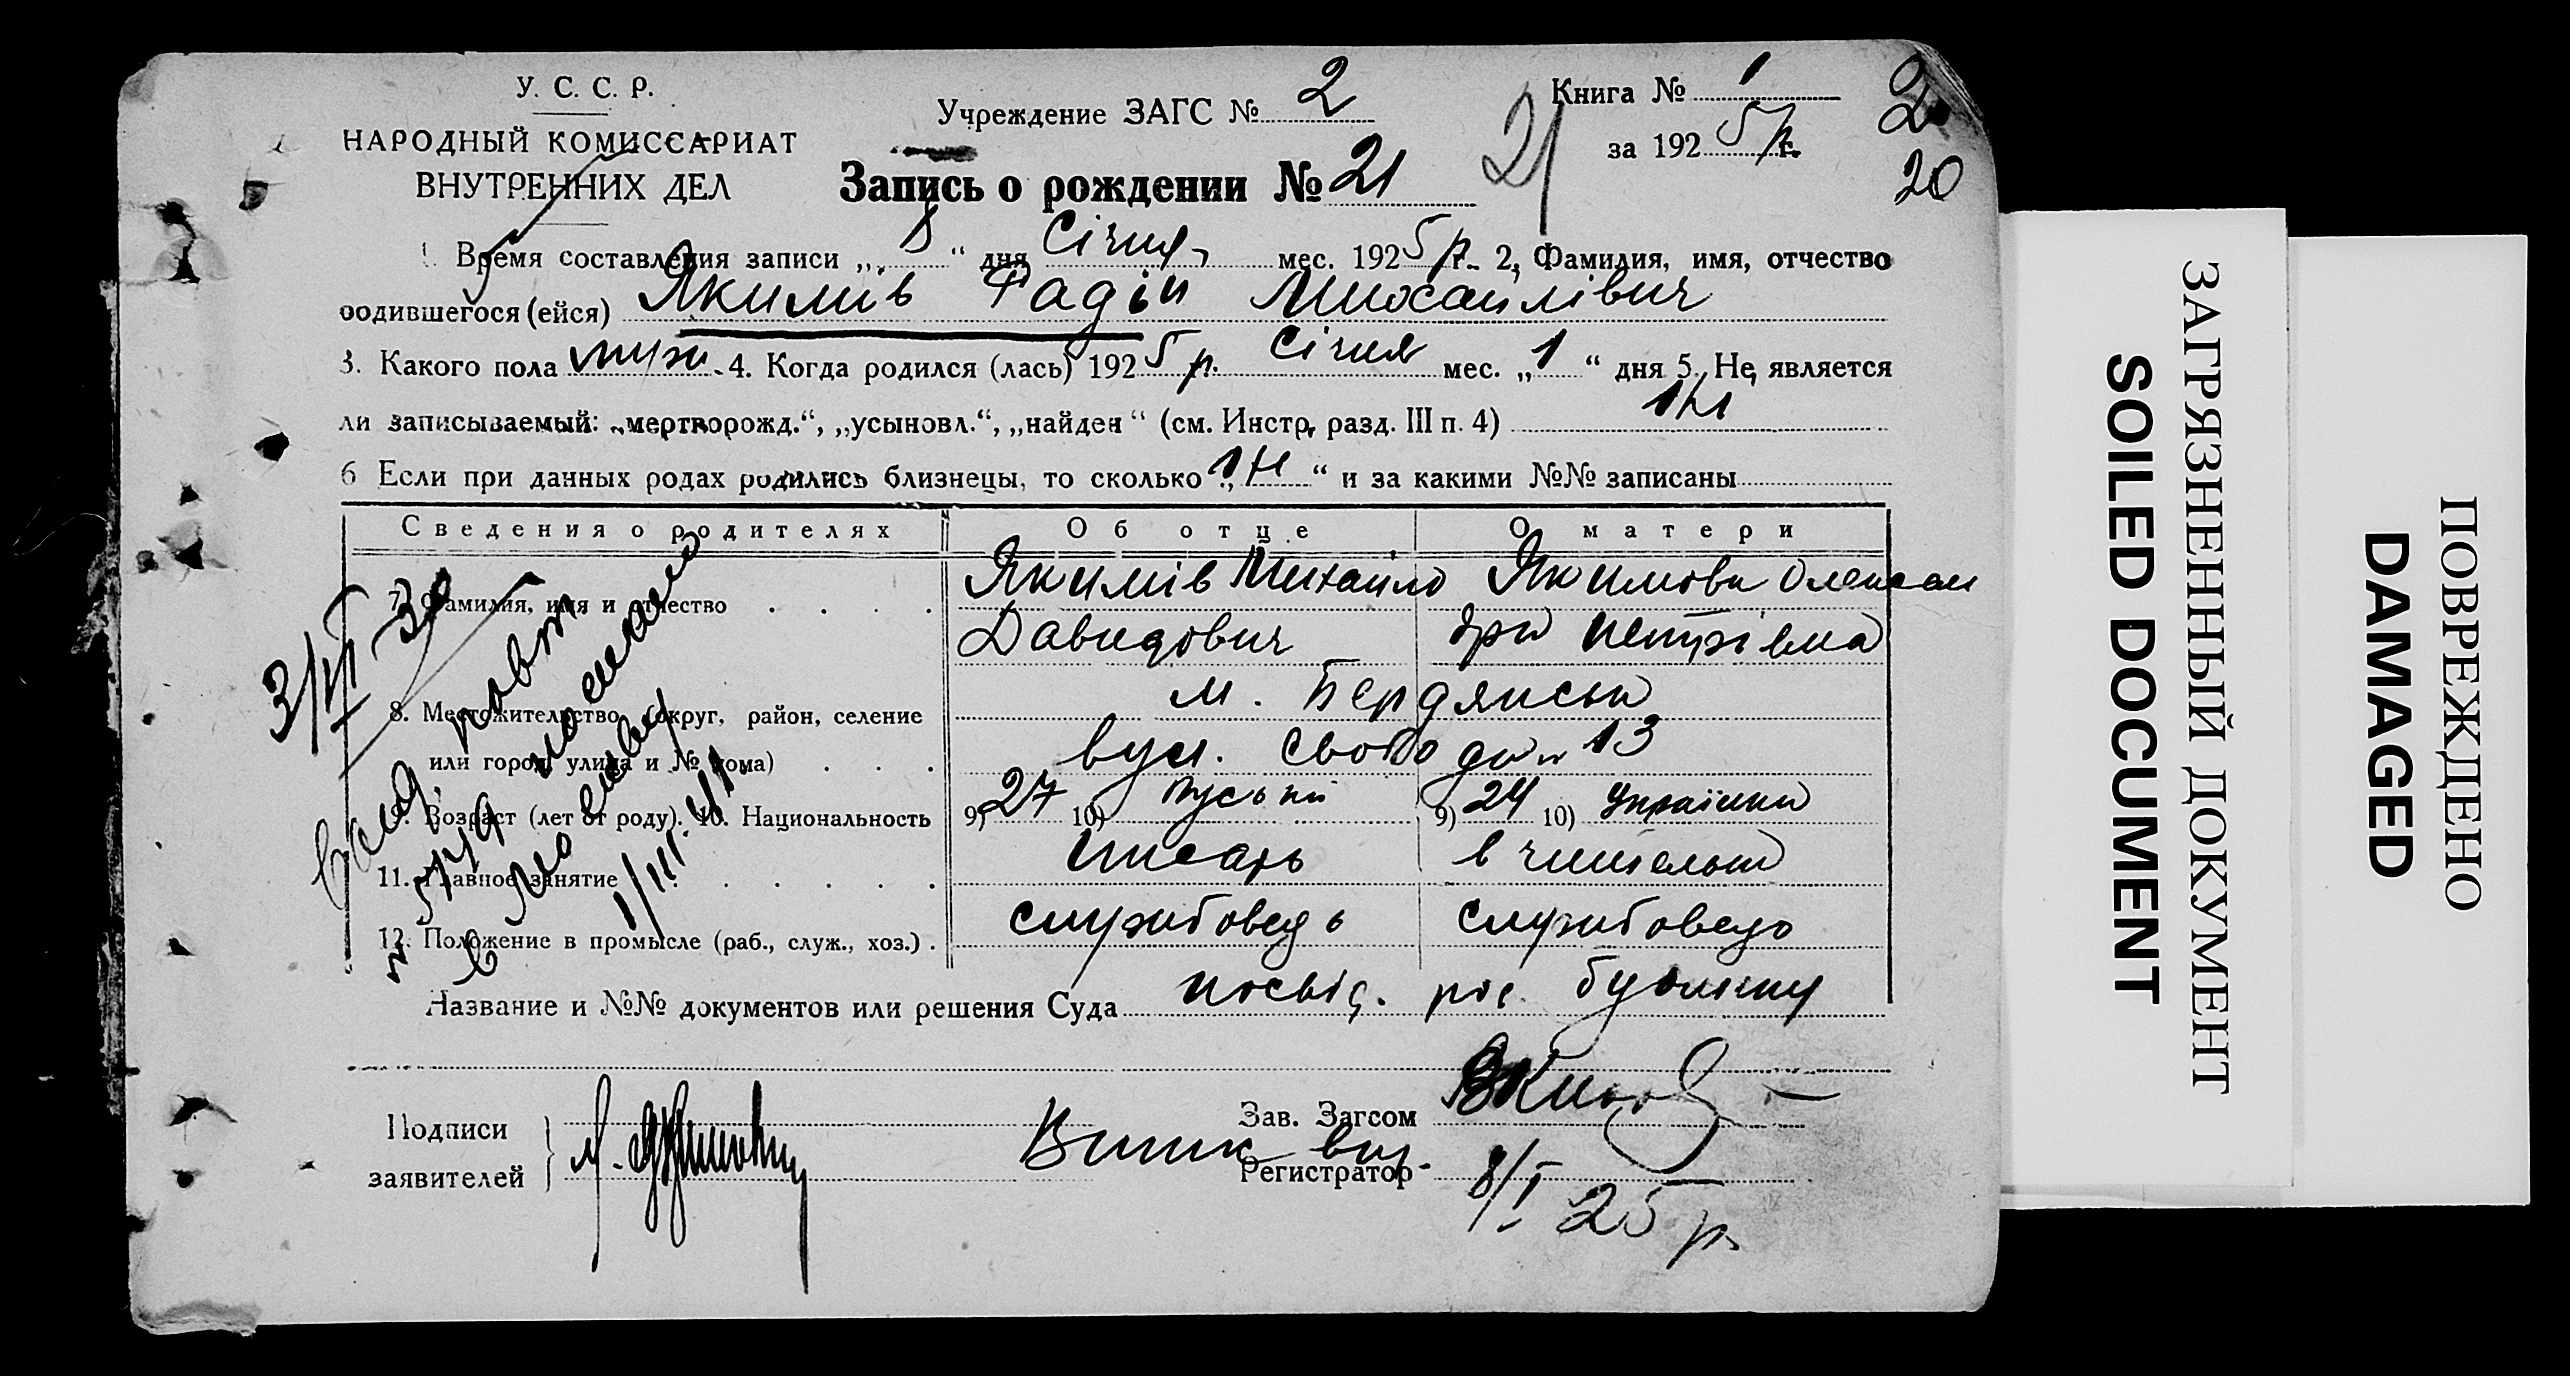 У. С. С. Р.
НАРОДНЫЙ КОМИССАРИАТ
ВНУТРЕННИХ ДЕЛ
Учреждение ЗАГС № 2
Книга № 1
за 1925 р.
2
20
Запись о рождении № 21
21
1. Время составления записи „8“ дня Січня мес. 1925 р. 2, Фамилия, имя, отчество
родившегося (ейся) Якимів Фадій Михайлівич
3. Какого пола муж. 4. Когда родился (лась) 1925 р. Січня мес. „1“ дня 5. Не является
ли записываемый: „мертворожд.“, „усыновл.“, „найден“ (см. Инстр, разд. III п. 4)
6 Если при данных родах родились близнецы, то сколько „ “ и за какими №№ записаны
Сведения о родителях Об отце О матери
7. Фамилия, имя и отчество Якимів Михайло Давидович Якимова Олександра Петрівна
8. Местожительство (округ, район, селение м. Бердянськ
или город, улица и № дома) вул. Свободи 13
9. Возраст (лет от роду). 10. Национальность 9) 27 10) Руський 9) 24 10) Українка
11. Главное занятие писарь вчителька
12. Положение в промысле (раб., служ., хоз.) службовець службовець
3/VI 30
1/III-41.
Название и №№ документов или решения Суда посвід. рос. будинку
Подписи
заявителей
Зав. Загсом
Регистратор
8/I 25 р.
ЗАГРЯЗНЕННЫЙ ДОКУМЕНТ
SOILED DOCUMENT
ПОВРЕЖДЕНО
DAMAGED